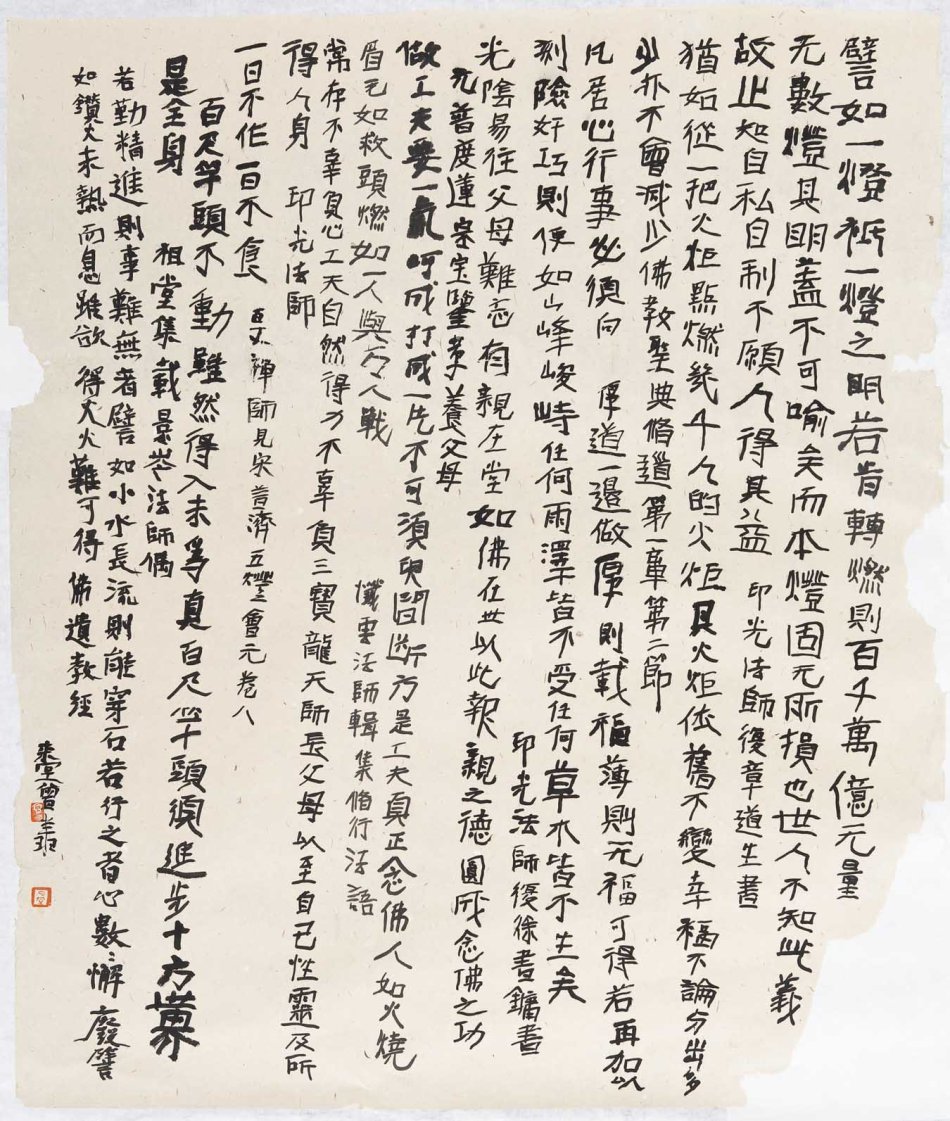 譬如一燈祇一燈之明若肯轉燃則百千萬億无量
无數燈其明蓋不可喻矣而本燈固无所損也世人不知此義
故止知自私自利不願人得其益 印光法師復章道生書
猶如從一把火炬點燃幾千人的火炬其火炬依舊不變幸福不論分出多
少亦不會減少佛教聖典脩道第一章第二節
凡居心行事必須向 厚道一邊做厚則載福薄則无福可得若再加以
刻險奸巧則便如山峰峻峙任何雨澤皆不受任何草木皆不生矣
印光法師復徐書鏞書
光陰易往父母難忘有親在堂如佛在世以此報親之德圓成念佛之功
元普度蓮宗宝鑒孝養父母
做工夫要一氣呵成打成一片不可須臾間斷方是工夫真正念佛人如火燒
眉毛如救頭燃如一人與万人戰 懺雲法師輯集脩行法語
常存不辜負心工夫自然得力不辜負三寶龍天師長父母以至自己性靈及所
得人身 印光法師
一日不作一日不食 百丈禅師見宋普濟五燈會元卷八
百尺竿頭不動 雖然得入未為真百尺竿頭須進步十方世界
是全身 祖堂集載景岑法師偈
若勤精進則事難無者譬如小水長流則能穿石若行之者心數〻懈廢譬
如鑽火未熱而息雖欲得火火難可得 佛遺教經